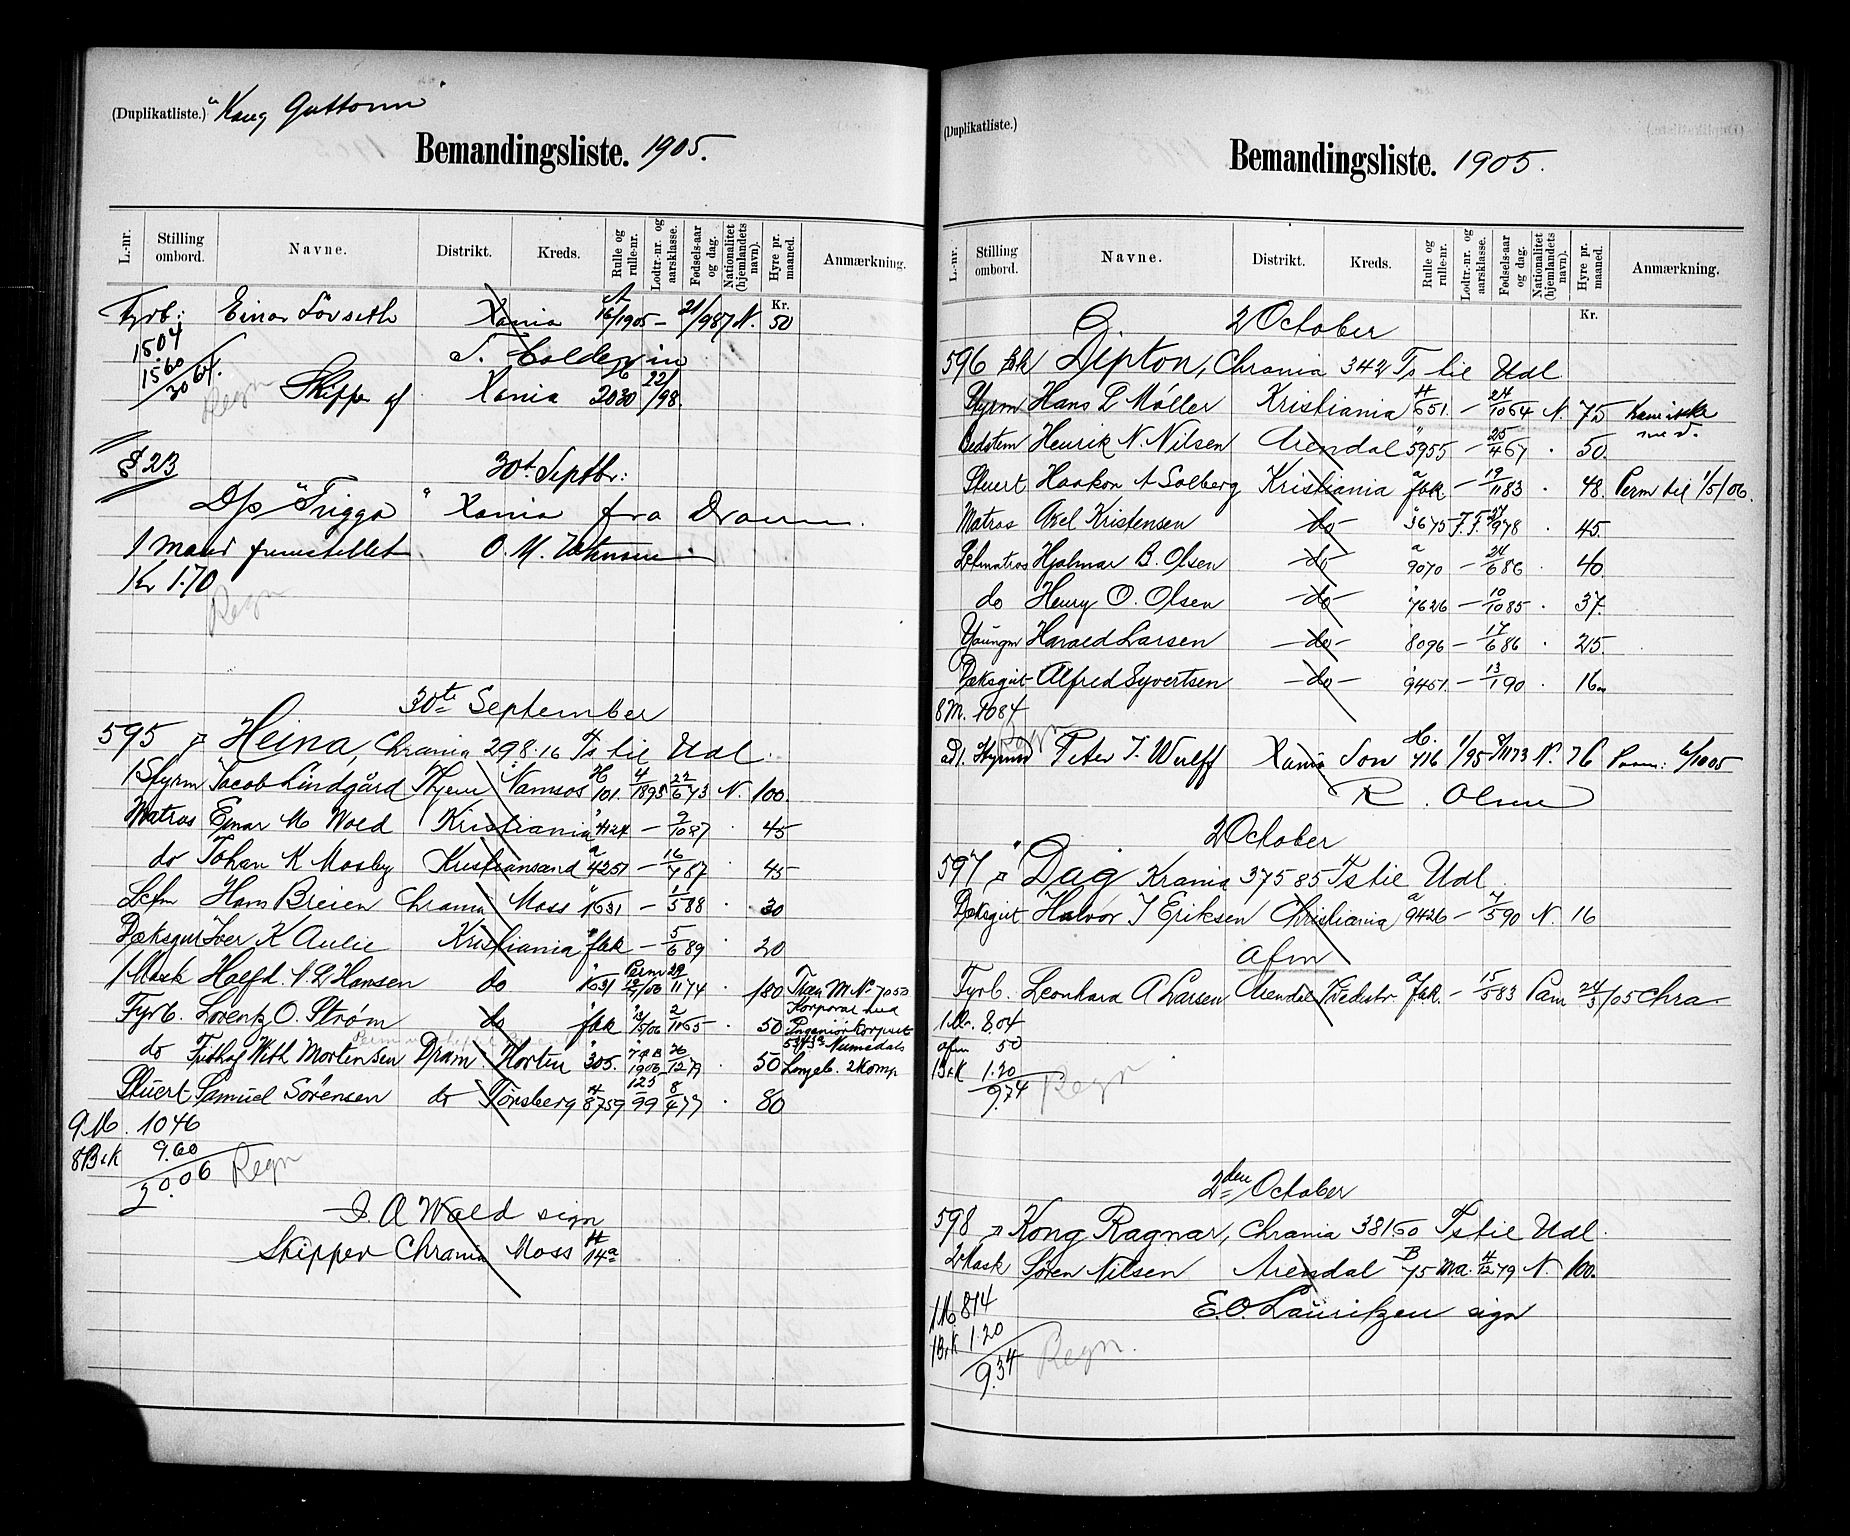 (Duplikatliste.) "Kong Guttorm"
Bemandingsliste. 1905.
L.-nr. Stilling ombord. Navne. Distrikt. Kreds. Rulle og rulle-nr. Lodtr.-nr. og aarsklasse. Fødsels-aar og dag. Nationalitet (hjemlandets navn). Hyre pr. maaned. Anmærkning.
Kr.
Fyrb: Einar Lövseth Xania A 16/1905 – 21/987 N. 50
15.04
15.60
30.64. Regn
Skipper af Xania 2020 22/98
§ 23 30t Septbr:
D/s "Trigga" Xania fra Dram
1 Mand fremstillet
Kr 1.70
Regn
30te September
595 Heina, Chrania 298.16 Ts til Udl.
1 Styrm Jacob Lindgård Thjem Namsos H 101. 4/1895 22/673 N. 100.
Matros Ejnar M Wold Kristiania " 4124 – 9/1087 " 45
do Johan K Mosby Kristiansand a 4251 – 16/787 " 45
Letm Hans Breien Chrania Moss " 1631 – 1/588 " 30
Dæksgut Iver K Aulie Kristiania " fak – 5/689 " 20
1 Mask Halfd. A L Hansen do " 1031 Perm 29/1174 " 180 Træn M No 7050
Fyrb. Lorentz O. Strøm do " fak 1/5/06 2/1165 " 50 Korporal ved Ingeniørkorpset
do Fridthof With Mortensen Dram. Horten " 305. 1906 26/1279 " 50 Numedals Longeb. 2 Komp
Stuert Samuel Sörensen do Tönsberg H 8759 125/99 8/477 " 80
9 M. 10.46
8 B&K 9.60
20.06 Regn
I. A Wold sign
Skipper Chrania Moss H 14a
(Duplikatliste.)
Bemandingsliste. 1905.
L.-nr. Stilling ombord. Navne. Distrikt. Kreds. Rulle og rulle-nr. Lodtr.-nr. og aarsklasse. Fødsels-aar og dag. Nationalitet (hjemlandets navn). Hyre pr. maaned. Anmærkning.
Kr.
2 October
596 Bk Dipton, Chrania 342 Ts til Udl
Styrm Hans P Møller Kristiania H 651. – 24/1064 N. 75 Kom ikke med.
Bedstem Henrik N. Nilsen Arendal " 5955 – 25/467 " 50.
Stuert Haakon A Solberg Kristiania a fak – 19/1183 " 48. Perm til 1/5/06.
Matros Axel Kristensen –do– " 3675 F.F. 27/978 " 45.
Letmatros Hjalmar B. Olsen –do– a 9070 – 24/686 " 40.
do Henry O. Olsen –do– " 7626 – 10/1085 " 37.
Youngm Harald Larsen –do– " 8096 – 17/686 " 25.
Dæksgut Alfred Syvertsen –do– " 9451. – 13/190 " 16
8 M. 10.84
Regn
2d. Styrmd Peter J. Wulff Xania Son H. 416 1/95 8/1173 N. 76 Perm: 6/1005
R. Olsen
2 October
597 "Dag Krania 375 85 Ts til Udl
Dæksgut Halvor J Eriksen Christiania a 9426 – 4/590 N. 16
afm
Fyrb. Leonhard A Larsen Arendal Vedestr. a fak. – 15/583 Pam 24/3/05 Chra
1 M. 8.04
afm 50
1 B&K 1.20
9.74 Regn
2den October
598 Kong Ragnar, Chrania 381.60 Ts til Udl.
2 Mask Søren Nilsen Arendal B 75 Ma. 4/1279 N. 100.
1 M 8.14
1 B&K 1.20
9.34 Regn.
E. O. Lauritzen sign